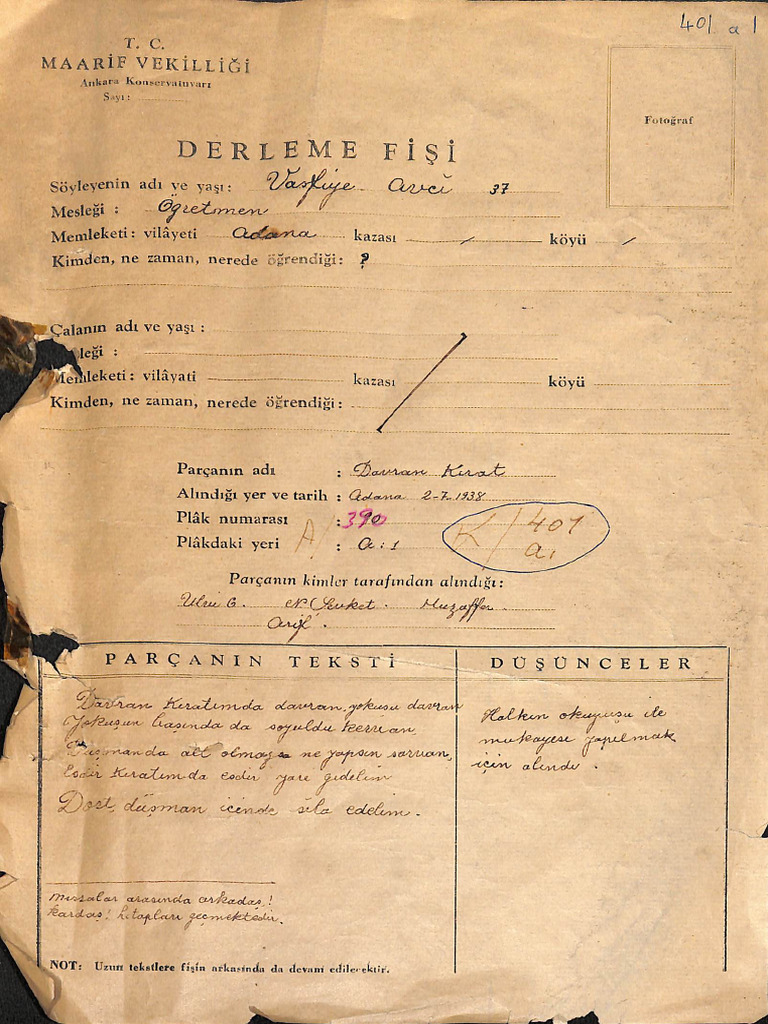 401 a 1
T. C.
MAARİF VEKİLLİĞİ
Ankara Konservatuvarı
Sayı:
Fotoğraf
DERLEME FİŞİ
Söyleyenin adı ve yaşı: Vasfiye Avcı 37
Mesleği : Öğretmen
Memleketi: vilâyeti Adana kazası / köyü /
Kimden, ne zaman, nerede öğrendiği: ?
Çalanın adı ve yaşı :
leği :
Memleketi: vilâyati kazası köyü
Kimden, ne zaman, nerede öğrendiği:
Parçanın adı : Davran Kırat
Alındığı yer ve tarih : Adana 2-7-1938
Plâk numarası : 390
Plâkdaki yeri A/ : a:1
K/401
a1
Parçanın kimler tarafından alındığı:
Ulvi C. N. Şevket. Muzaffer.
Arif.
PARÇANIN TEKSTİ
Davran Kıratımda davran, yokuşu davran
Yokuşun başında da soyuldu kervan,
Düşmanda alt olmaz ne yapsın sarvan,
Esdir Kıratımda esdir yare gidelim
Dost, düşman içinde sıla edelim.
mıssalar arasında arkadaş!
kardaş! hitapları geçmektedir.
DÜŞÜNCELER
Halkın okuyuşu ile
mukayese yapılmak
için alındı.
NOT: Uzun tekstlere fişin arkasında da devam edilecektir.